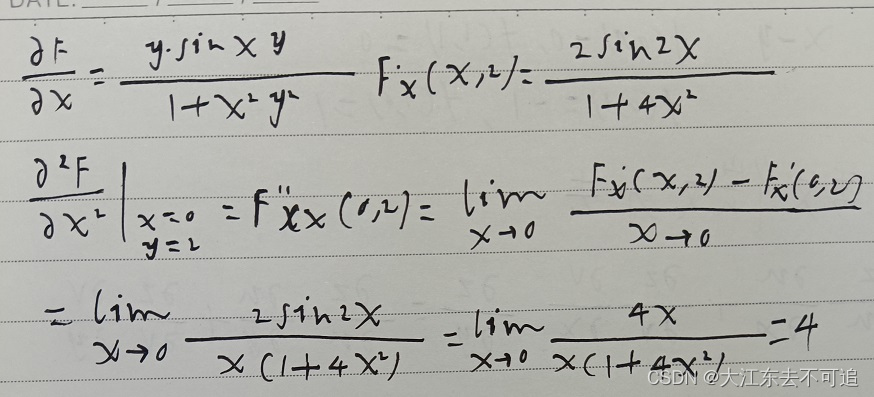 DATE:
∂F/∂x = y·sin x y / 1+x²y² F'x(x,2) = 2sin2x / 1+4x²
∂²F/∂x² | x=0 y=2 = F''xx(0,2) = lim x→0 F'x(x,2) − F'x(0,2) / x→0
= lim x→0 2sin2x / x(1+4x²) = lim x→0 4x / x(1+4x²) = 4
CSDN @大江东去不可追